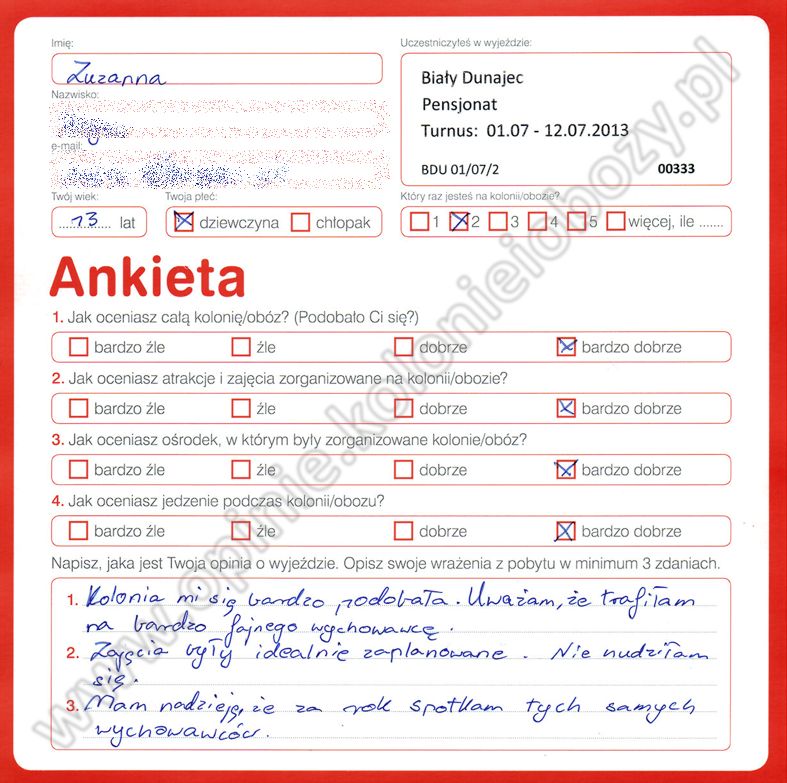 Imię:
Zuzanna
Uczestniczyłeś w wyjeździe:
Biały Dunajec
Pensjonat
Turnus: 01.07 - 12.07.2013
BDU 01/07/2
00333
Nazwisko:
e-mail:
Twój wiek:
13 lat
Twoja płeć:
dziewczyna
chłopak
Który raz jesteś na kolonii/obozie?
1 2 3 4 5 więcej, ile .......
Ankieta
1. Jak oceniasz całą kolonię/obóz? (Podobało Ci się?)
bardzo źle źle dobrze bardzo dobrze
2. Jak oceniasz atrakcje i zajęcia zorganizowane na kolonii/obozie?
bardzo źle źle dobrze bardzo dobrze
3. Jak oceniasz ośrodek, w którym były zorganizowane kolonie/obóz?
bardzo źle źle dobrze bardzo dobrze
4. Jak oceniasz jedzenie podczas kolonii/obozu?
bardzo źle źle dobrze bardzo dobrze
Napisz, jaka jest Twoja opinia o wyjeździe. Opisz swoje wrażenia z pobytu w minimum 3 zdaniach.
1. Kolonia mi się bardzo podobała. Uważam, że trafiłam
na bardzo fajnego wychowawcę.
2. Zajęcia były idealnie zaplanowane. Nie nudziłam
się.
3. Mam nadzieję, że za rok spotkam tych samych
wychowawców.
www.opinie.kolonieiobozy.pl